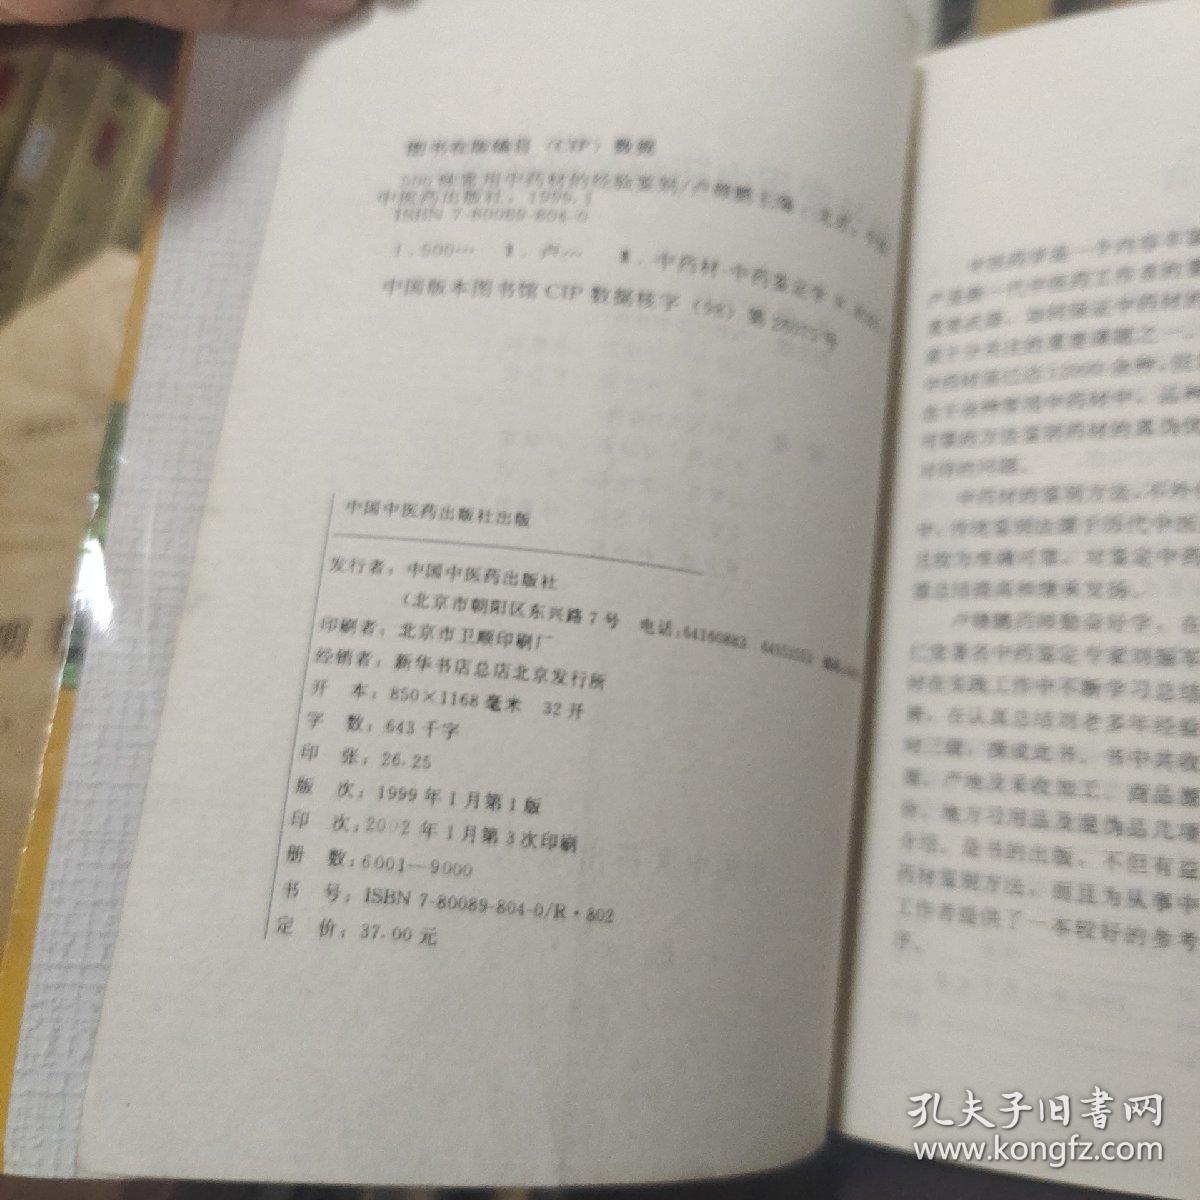 图书在版编目（CIP）数据
500种常用中药材的经验鉴别/卢赣鹏主编．北京：中国
中医药出版社，1999.1
ISBN 7-80089-804-0
Ⅰ.500… Ⅱ.卢… Ⅲ.中药材-中药鉴定学
中国版本图书馆CIP数据核字（98）第
中国中医药出版社出版
发行者：中国中医药出版社
（北京市朝阳区东兴路7号 电话：64160883
印刷者：北京市卫顺印刷厂
经销者：新华书店总店北京发行所
开 本：850×1168毫米 32开
字 数：643千字
印 张：26.25
版 次：1999年1月第1版
印 次：2002年1月第3次印刷
册 数：6001—9000
书 号：ISBN 7-80089-804-0/R·802
定 价：37.00元
中医药学是一个内容丰富
产是新一代中医药工作者的重
重要武器，如何保证中药材的
量十分关注的重要课题之一。
中药材虽已达12000余种，但
在千余种常用中药材中，品种
可靠的方法鉴别药材的真伪优
讨得的问题。
中药材的鉴别方法，不外
中，传统鉴别法源于历代中医
且较为准确可靠，对鉴定中药
需总结提高和继承发扬。
卢赣鹏药师勤奋好学，在
仁堂著名中药鉴定专家刘振军
材在实践工作中不断学习总结
善，在认真总结刘老多年经验
时三载，撰成此书。书中共收
源、产地及采收加工、商品规
价、地方习用品及混伪品几项
介绍。是书的出版，不但有益
药材鉴别方法，而且为从事中
工作者提供了一本较好的参考
序。
孔夫子旧书网
www.kongfz.com